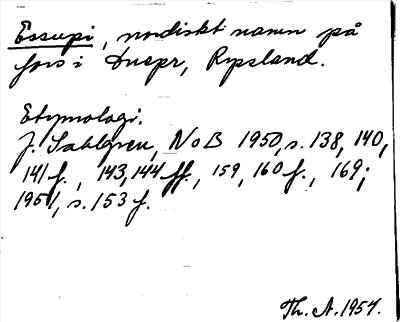 Essupi, nordiskt namn på
fors i Dnepr, Ryssland.
Etymologi.
J. Sahlgren, NoB 1950, s. 138, 140,
141 f., 143, 144 ff., 159, 160 f., 169;
1951, s. 153 f.
Th. A. 1957.